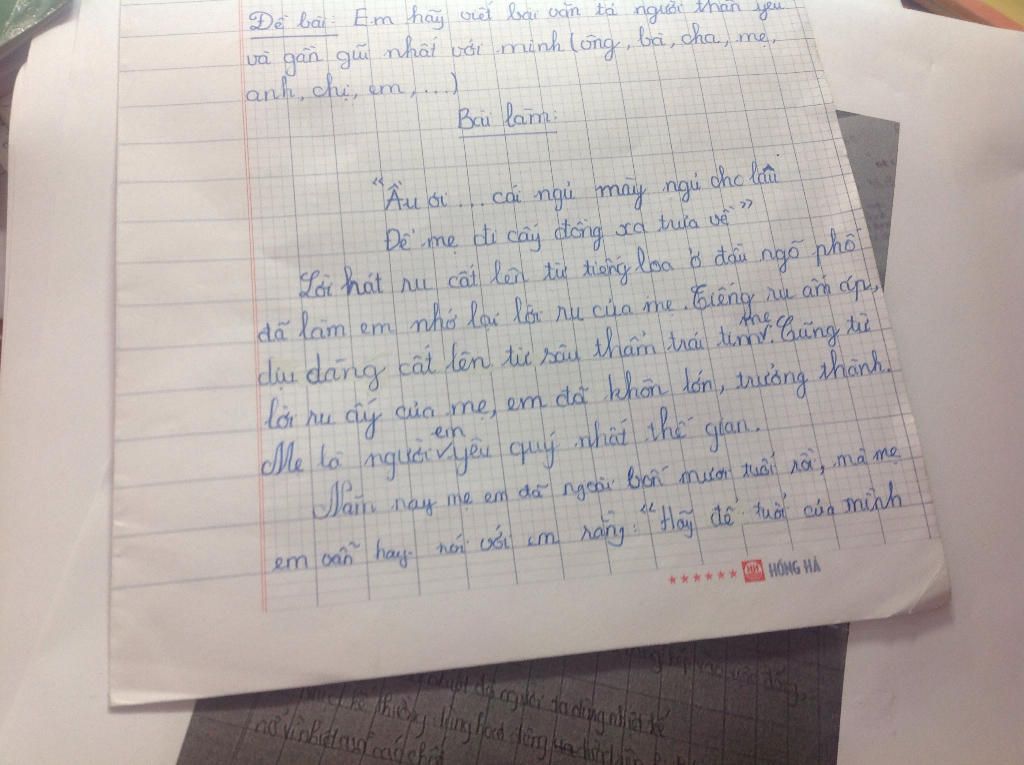 Đề bài: Em hãy viết bài văn tả người thân yêu
và gần gũi nhất với mình (ông, bà, cha, mẹ,
anh, chị, em,...)
Bài làm:
"Ầu ơi... cái ngủ mày ngủ cho lâu
Để mẹ đi cấy đồng xa trưa về"
Lời hát ru cất lên từ tiếng loa ở đầu ngõ phố
đã làm em nhớ lại lời ru của mẹ. Tiếng ru ấm áp,
dịu dàng cất lên từ sâu thẳm trái tim mẹ. Cũng từ
lời ru ấy của mẹ, em đã khôn lớn, trưởng thành.
Mẹ là người em yêu quý nhất thế gian.
Năm nay mẹ em đã ngoài bốn mươi tuổi rồi, mà mẹ
em vẫn hay nói với em rằng: "Hãy để tuổi của mình
HỒNG HÀ